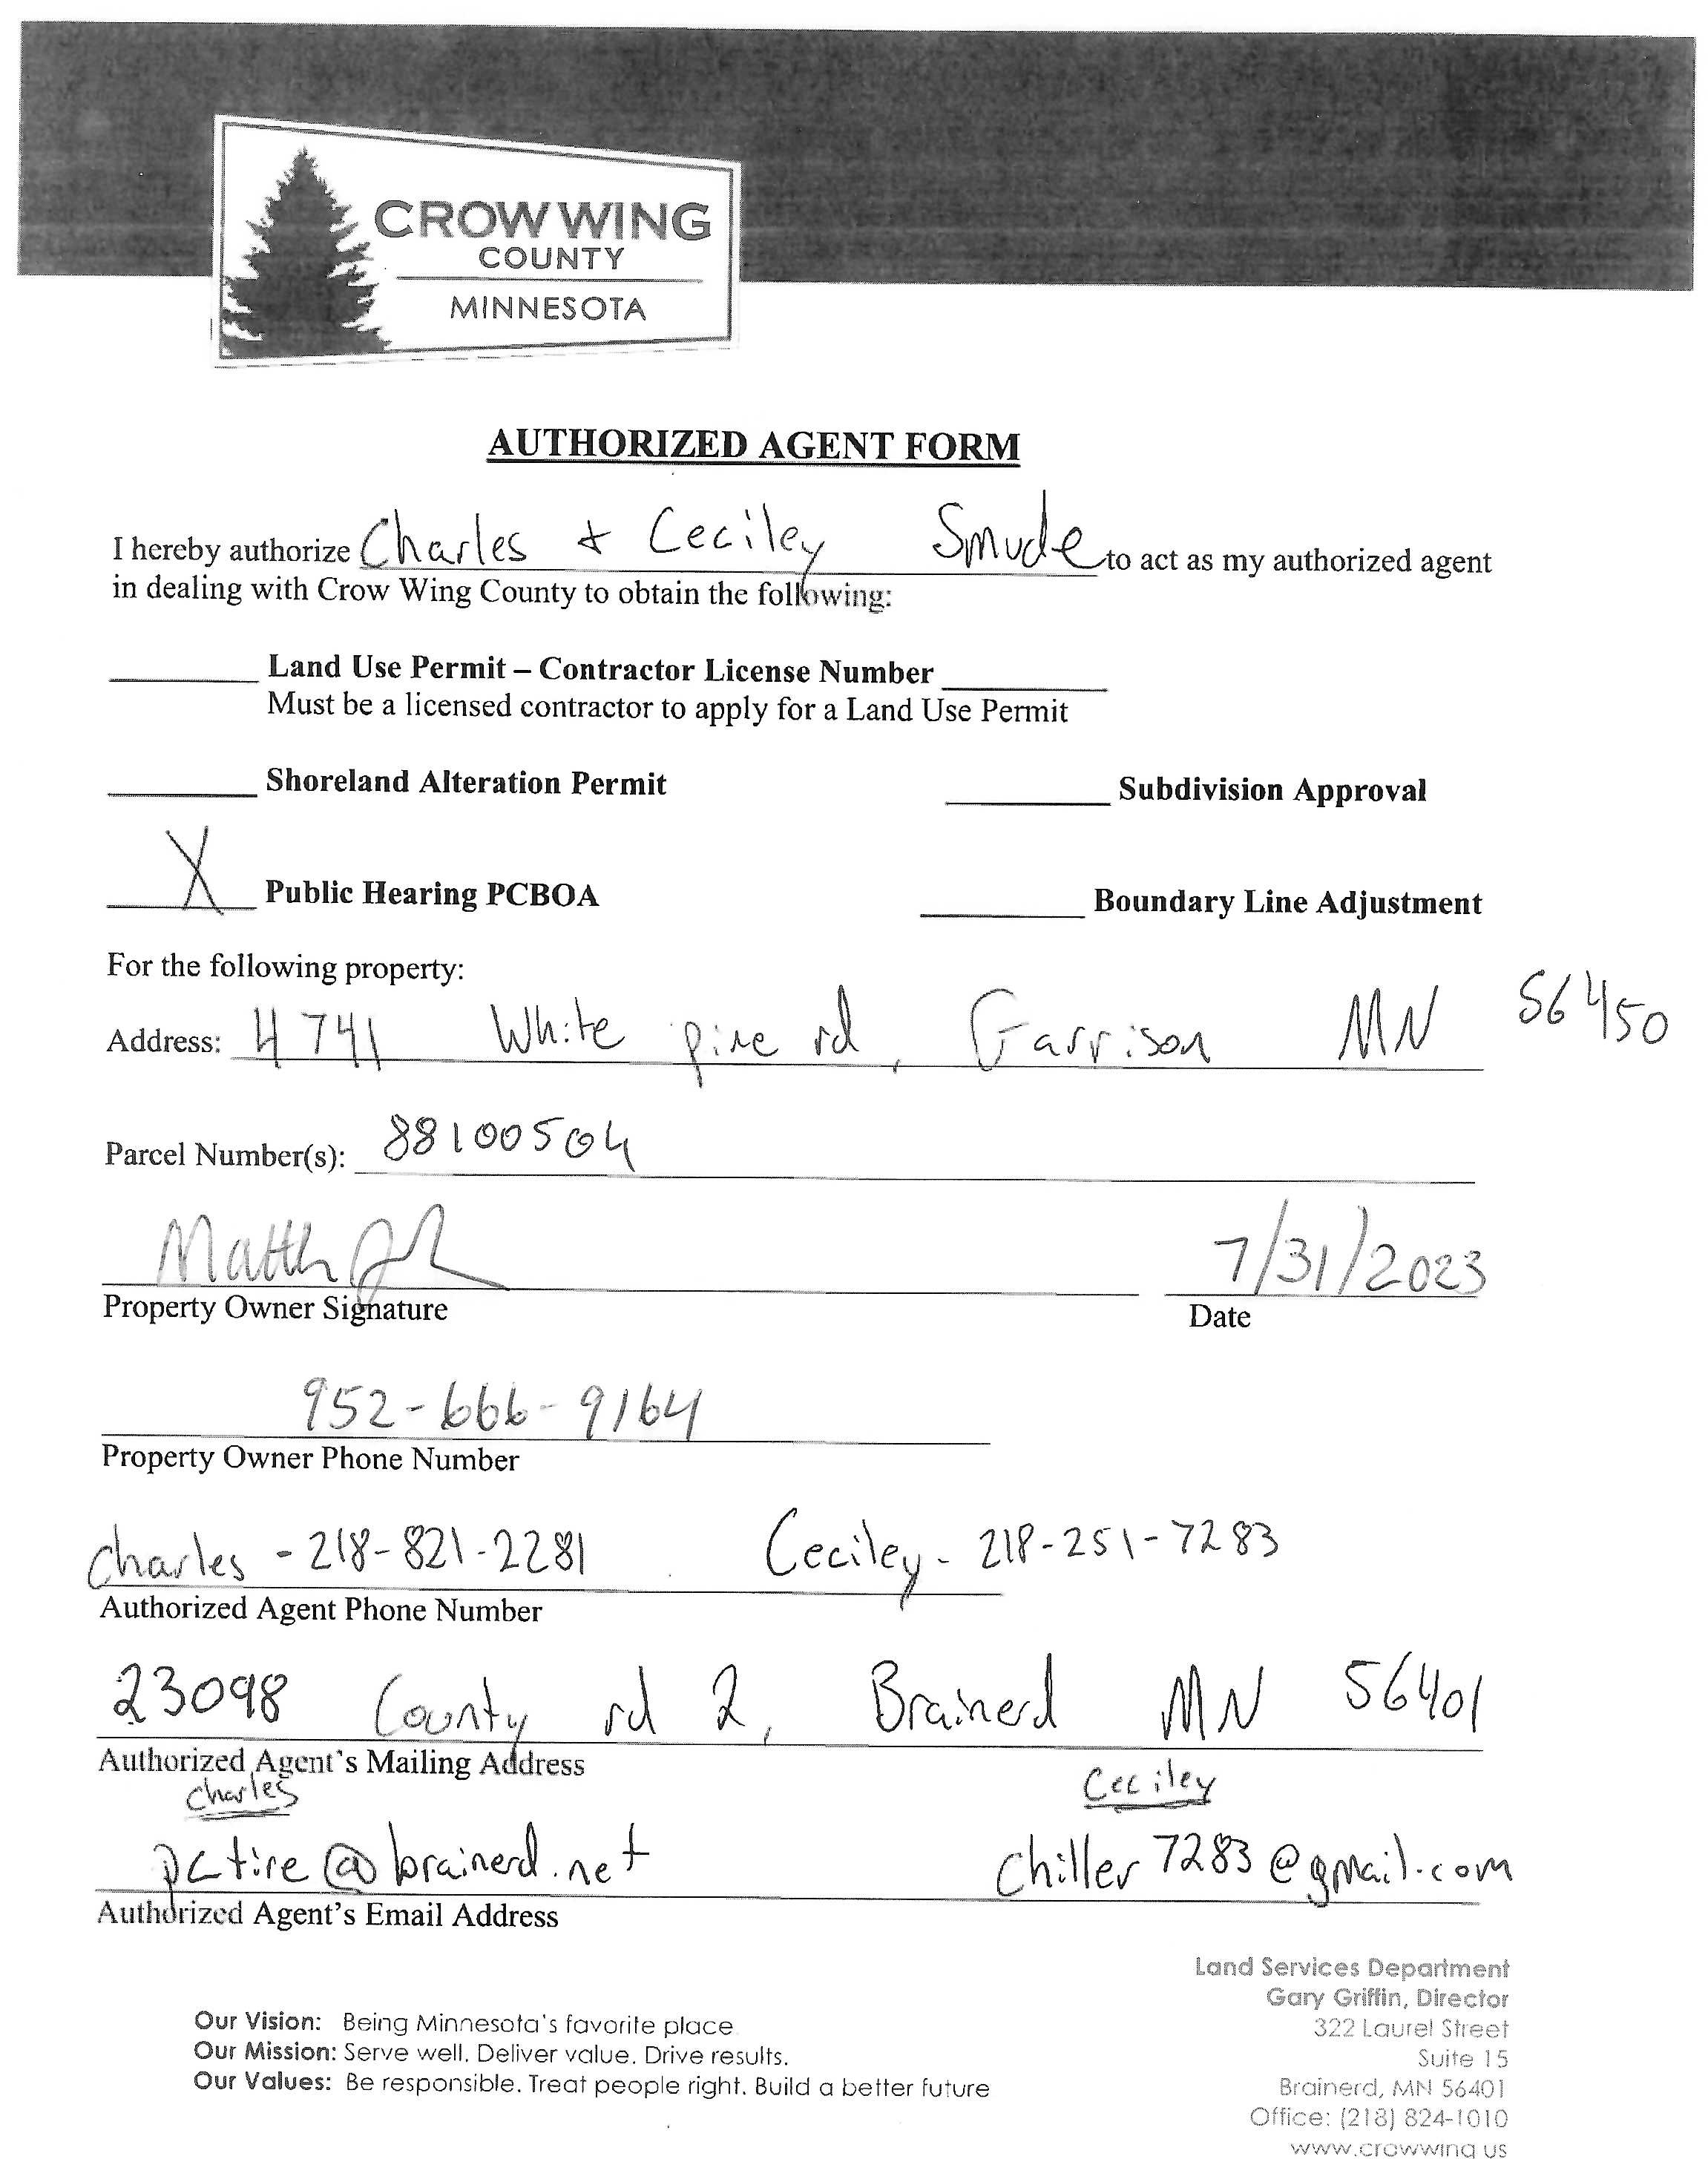 CROW WING
COUNTY
MINNESOTA
AUTHORIZED AGENT FORM
I hereby authorize Charles & Ceciley Smude to act as my authorized agent
in dealing with Crow Wing County to obtain the following:
Land Use Permit – Contractor License Number
Must be a licensed contractor to apply for a Land Use Permit
Shoreland Alteration Permit Subdivision Approval
X Public Hearing PCBOA Boundary Line Adjustment
For the following property:
Address: 4741 White pine rd, Garrison MN 56450
Parcel Number(s): 88100504
Property Owner Signature 7/31/2023
Date
952-666-9164
Property Owner Phone Number
Charles - 218-821-2281 Ceciley - 218-251-7283
Authorized Agent Phone Number
23098 County rd 2, Brainerd MN 56401
Authorized Agent's Mailing Address
Charles Ceciley
pctire@brainerd.net chiller7283@gmail.com
Authorized Agent's Email Address
Land Services Department
Gary Griffin, Director
322 Laurel Street
Suite 15
Brainerd, MN 56401
Office: (218) 824-1010
www.crowwing.us
Our Vision: Being Minnesota's favorite place.
Our Mission: Serve well. Deliver value. Drive results.
Our Values: Be responsible. Treat people right. Build a better future